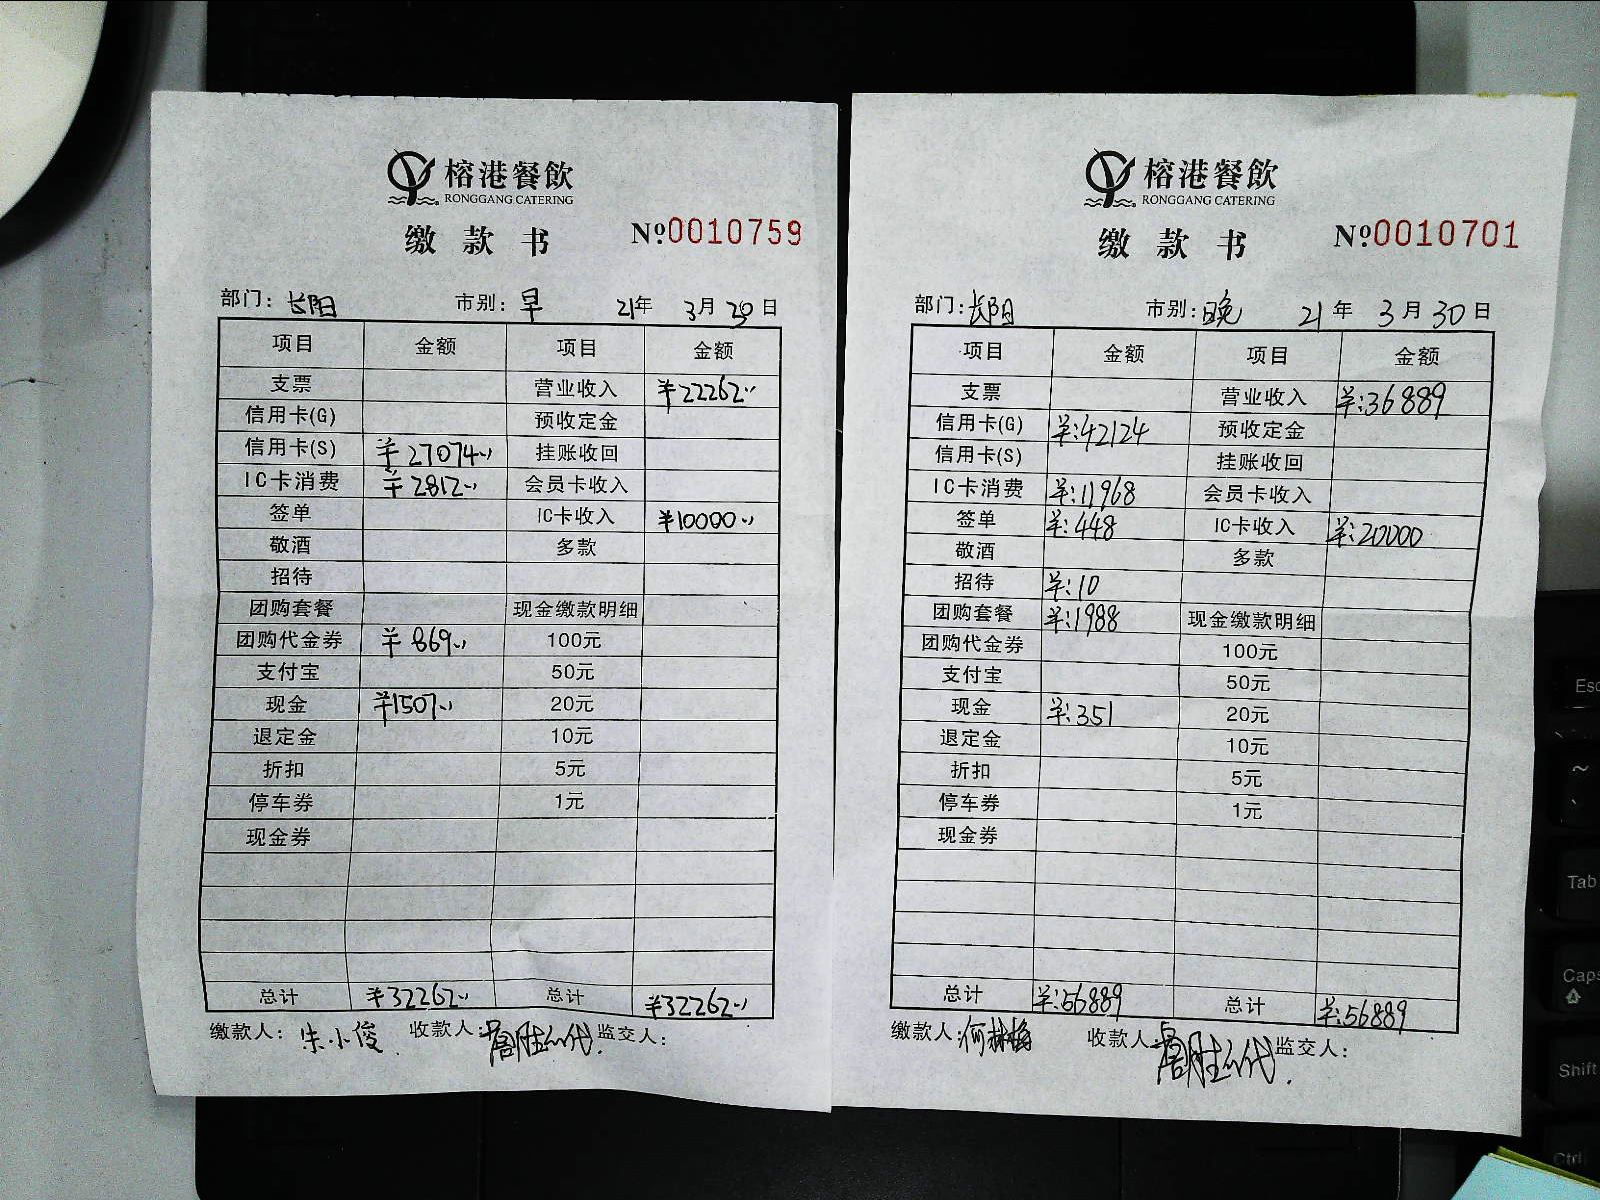 榕港餐飲
RONGGANG CATERING
缴款书 №0010759
部门: 长阳 市别: 早 21年 3月 30日
项目 金额 项目 金额
支票 营业收入 ¥22262..
信用卡(G) 预收定金
信用卡(S) ¥27074.. 挂账收回
IC卡消费 ¥2812.. 会员卡收入
签单 IC卡收入 ¥10000..
敬酒 多款
招待
团购套餐 现金缴款明细
团购代金券 ¥869.. 100元
支付宝 50元
现金 ¥1507.. 20元
退定金 10元
折扣 5元
停车券 1元
现金券
总计 ¥32262.. 总计 ¥32262..
缴款人: 朱小俊 收款人: 监交人:
榕港餐飲
RONGGANG CATERING
缴款书 №0010701
部门: 长阳 市别: 晚 21年 3月30日
项目 金额 项目 金额
支票 营业收入 ¥:36889
信用卡(G) ¥:42124 预收定金
信用卡(S) 挂账收回
IC卡消费 ¥:11968 会员卡收入
签单 ¥:448 IC卡收入 ¥:20000
敬酒 多款
招待 ¥:10
团购套餐 ¥:1988 现金缴款明细
团购代金券 100元
支付宝 50元
现金 ¥:351 20元
退定金 10元
折扣 5元
停车券 1元
现金券
总计 ¥:56889 总计 ¥:56889
缴款人: 收款人: 监交人:
Esc
~
Tab
Caps
Shift
Ctrl